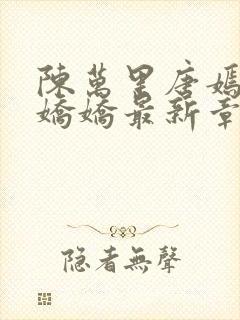 陳萬里唐嫣
嬌嬌最新章
隐者無聲